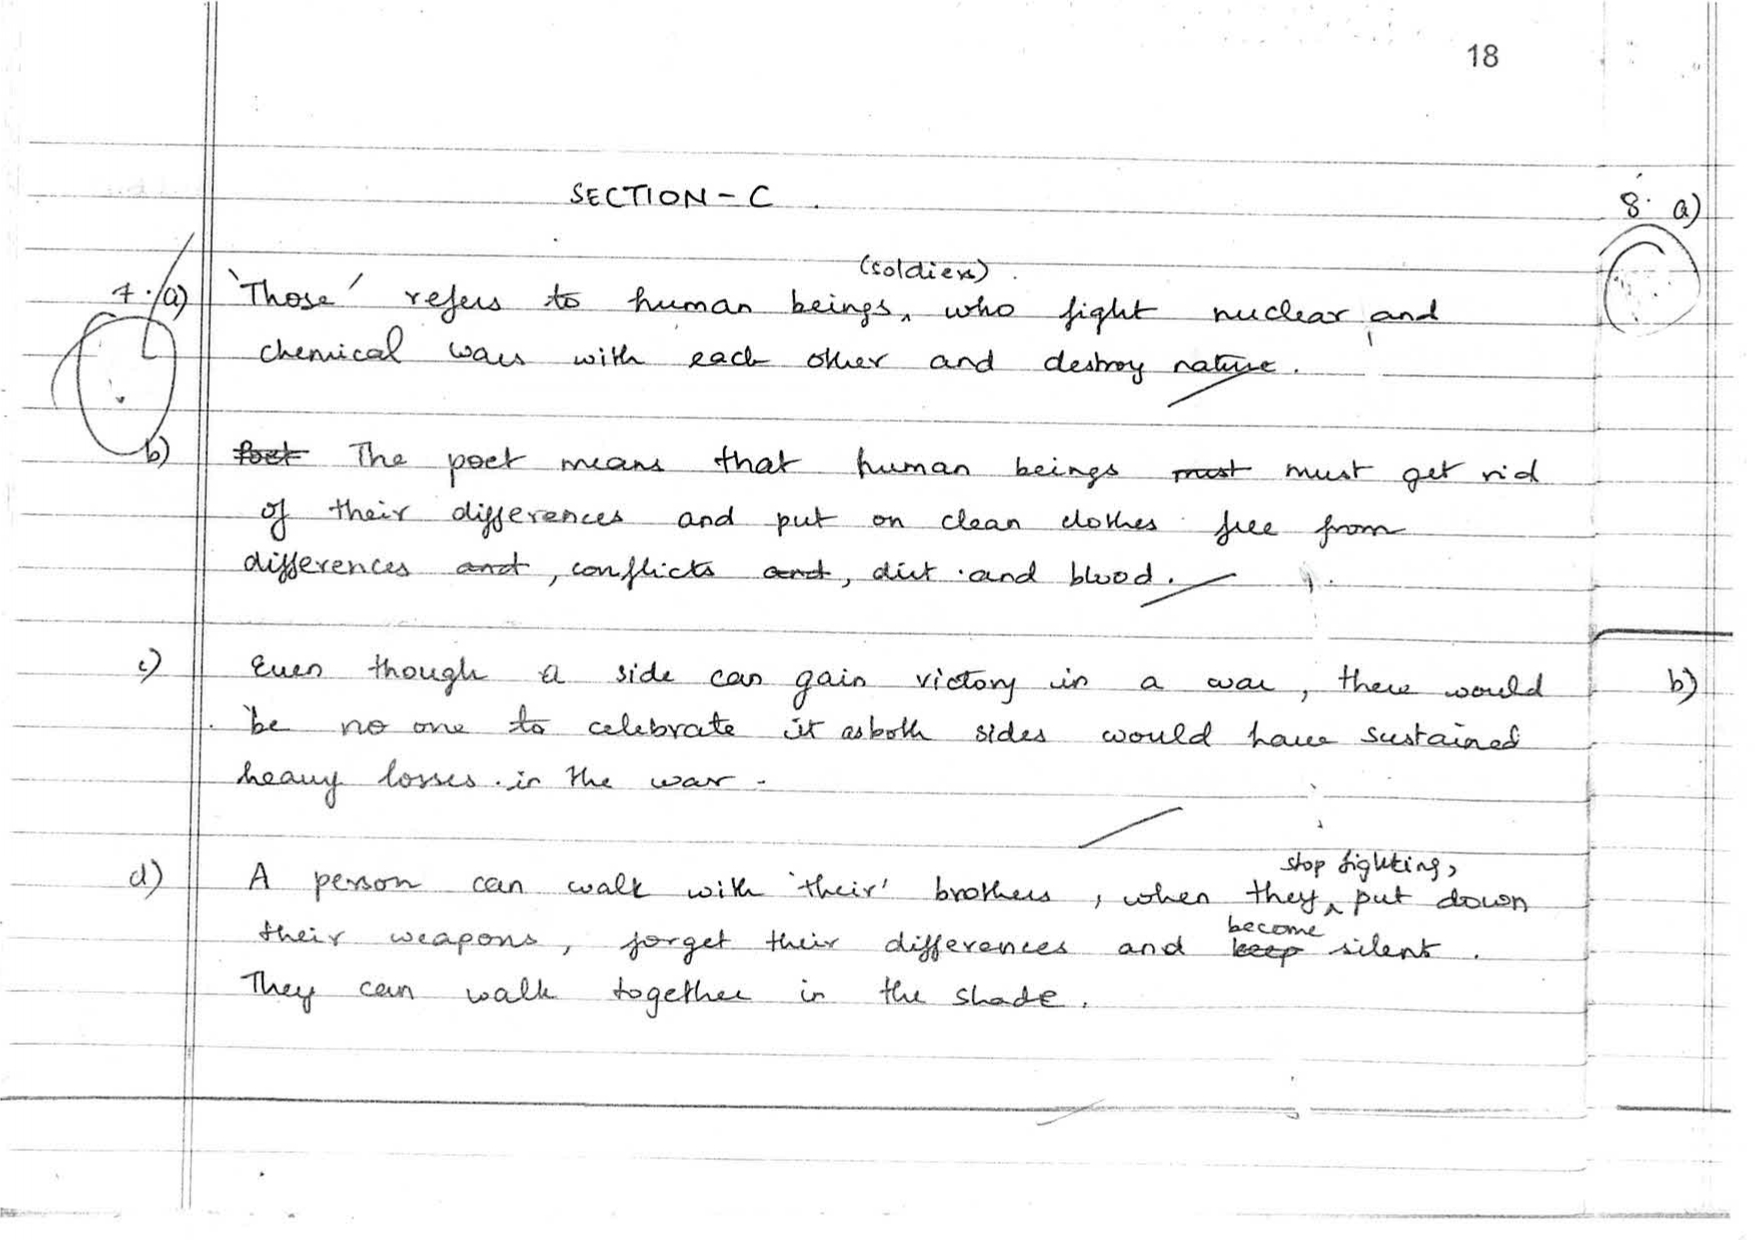 18
SECTION - C
(soldiers)
7. (a) 'Those' refers to human beings, who fight nuclear and
chemical wars with each other and destroy nature.
b) Poet The poet means that human beings must must get rid
of their differences and put on clean clothes free from
differences and, conflicts and, dirt and blood.
c) Even though a side can gain victory in a war, there would
be no one to celebrate it as both sides would have sustained
heavy losses in the war.
stop fighting,
d) A person can walk with 'their' brothers, when they put down
become
their weapons, forget their differences and keep silent.
They can walk together in the shade.
8. a)
b)